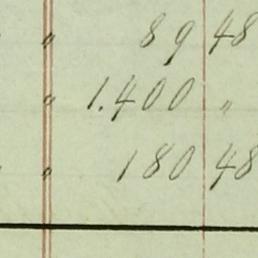 " " 89 48
" 1.400 "
" " 180 48